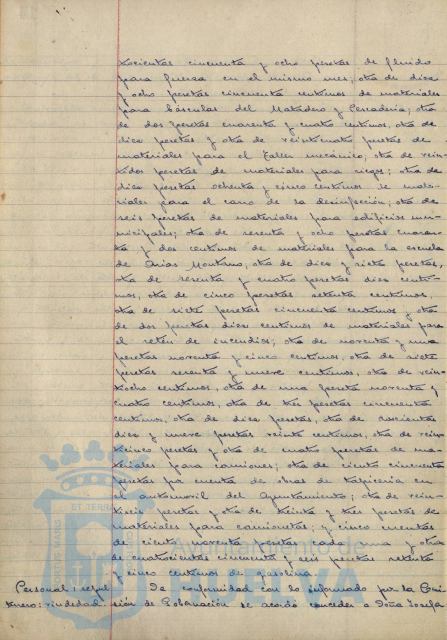 xocientas cincuenta y ocho pesetas de fluido
para fuerza en el mismo mes; otra de diez
y ocho pesetas cincuenta centimos de materiales
para básculas del Matadero y Pescaderia; otra
de dos pesetas cuarenta y cuatro centimos, otra de
diez pesetas y otra de veinticuatro pesetas de
materiales para el taller mecánico; otra de vein-
tidos pesetas de materiales para riegos; otra de
diez pesetas ochenta y cinco centimos de mate-
riales para el carro de la desinfección; otra de
seis pesetas de materiales para edificios mu-
nicipales; otra de sesenta y ocho pesetas cuaren-
ta y dos centimos de materiales para la escuela
de Arias Montano, otra de diez y siete pesetas,
otra de sesenta y cuatro pesetas diez centi-
mos, otra de cinco pesetas setenta centimos,
otra de siete pesetas cincuenta centimos y otra
de dos pesetas diez centimos de materiales para
el retén de incendios; otra de noventa y una
pesetas noventa y cinco centimos, otra de siete
pesetas sesenta y nueve centimos, otra de vein-
tiocho centimos, otra de una peseta noventa y
cuatro centimos, otra de tres pesetas cincuenta
centimos, otra de diez pesetas, otra de doscientas
diez y nueve pesetas veinte centimos, otra de vein-
ticinco pesetas y otra de cuatro pesetas de ma-
teriales para camiones; otra de ciento cincuenta
pesetas por cuenta de obras de tapiceria en
el automovil del Ayuntamiento; otra de vein-
tiseis pesetas y otra de treinta y tres pesetas de
materiales para camionetas; y cinco cuentas
de ciento noventa pesetas cada una y otra
de cuatrocientas cincuenta y seis pesetas setenta
y cinco centimos de gasolina.
Personal: De conformidad con lo informado por la Comi-
sión de Gobernación se acordó conceder a Doña Josefa